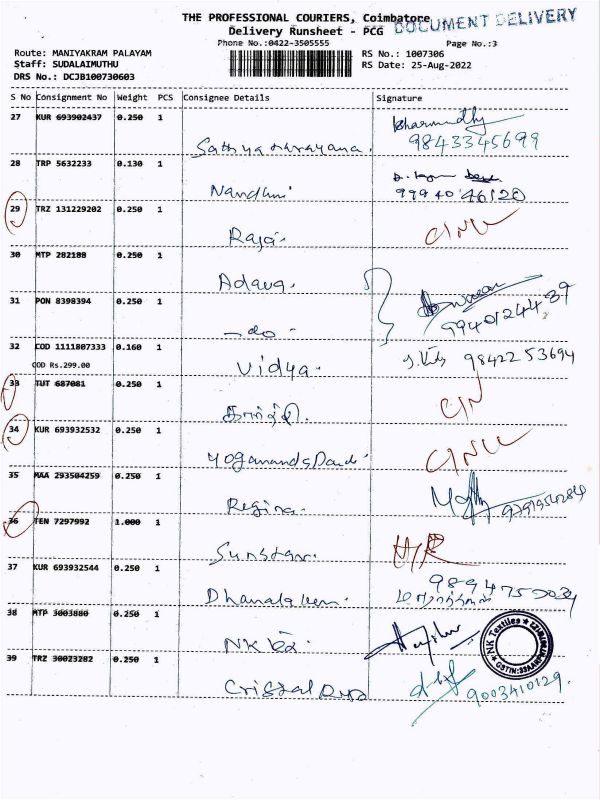 THE PROFESSIONAL COURIERS, Coimbatore
DOCUMENT DELIVERY
Delivery Runsheet - PCG
Phone No.:0422-3505555
Page No.:3
Route: MANIYAKRAM PALAYAM
RS No.: 1007306
Staff: SUDALAIMUTHU
RS Date: 25-Aug-2022
DRS No.: DCJB100730603
S No Consignment No Weight PCS Consignee Details Signature
27 KUR 693902437 0.250 1
Sathya narayana. 9843345699
28 TRP 5632233 0.130 1
Nandhini 99940 46120
29 TRZ 131229202 0.250 1
Raja. CINL
30 MTP 282188 0.250 1
Adava.
31 PON 8398394 0.250 1
- do - 9940124439
32 COD 1111807333 0.160 1
COD Rs.299.00
Vidya. 98422 53694
33 TUT 687081 0.250 1
CIN
34 KUR 693932532 0.250 1
CINL
35 MAA 293504259 0.250 1
Regina.
36 TEN 7297992 1.000 1
Sunstar.
37 KUR 693932544 0.250 1
38 MTP 3003880 0.250 1
NK
NK Textiles
39 TRZ 30023282 0.250 1
Cristal 9003410129.